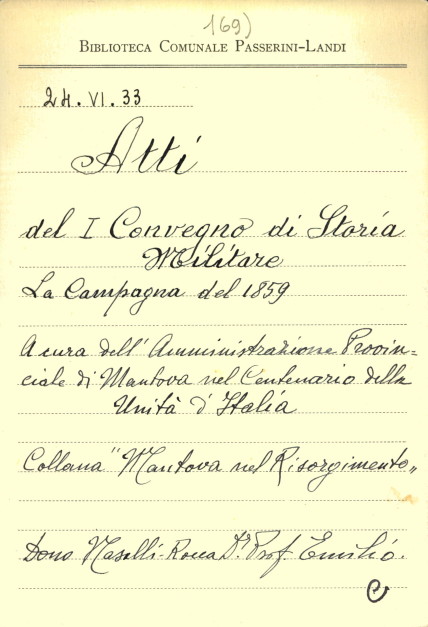 169)
BIBLIOTECA COMUNALE PASSERINI-LANDI
24. VI. 33
Atti
del I Convegno di Storia
Militare
La Campagna del 1859
A cura dell'Amministrazione Provin=
ciale di Mantova nel Centenario della
Unità d'Italia
Collana "Mantova nel Risorgimento„
Dono Nasalli-Rocca Dr. Prof. Emilio.
C